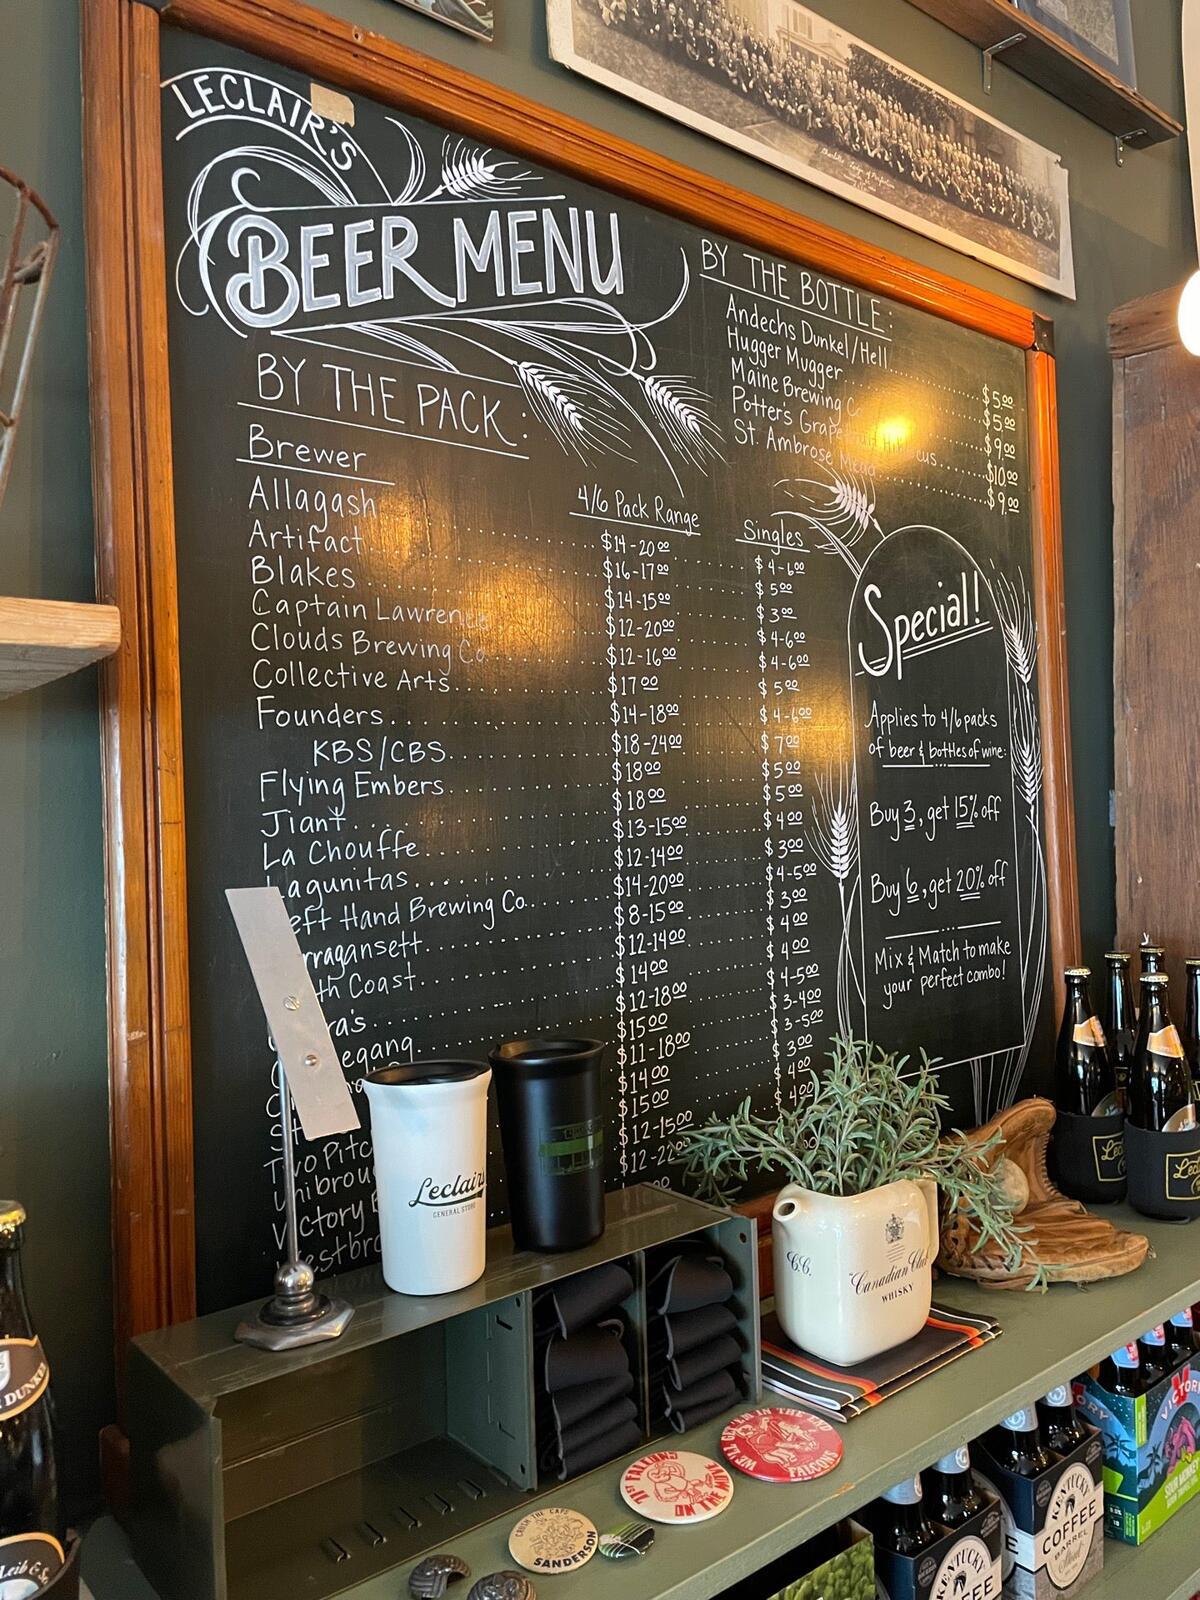 LECLAIR'S
BEER MENU
BY THE PACK:
Brewer
4/6 Pack Range
Singles
Allagash $14-20.00 $4-6.00
Artifact $16-17.00 $5.00
Blakes $14-15.00 $3.00
Captain Lawrence $12-20.00 $4-6.00
Clouds Brewing Co. $12-16.00 $4-6.00
Collective Arts $17.00 $5.00
Founders $14-18.00 $4-6.00
KBS/CBS $18-24.00 $7.00
Flying Embers $18.00 $5.00
Jiant $18.00 $5.00
La Chouffe $13-15.00 $4.00
Lagunitas $12-14.00 $3.00
eft Hand Brewing Co. $14-20.00 $4-5.00
rragansett $8-15.00 $3.00
th Coast $12-14.00 $4.00
ra's $14.00 $4.00
egang $12-18.00 $4-5.00
$15.00 $3-4.00
$11-18.00 $3-5.00
Two Pitc $14.00 $3.00
Unibrou $15.00 $4.00
Victory $12-15.00 $4.00
estbro $12-22.00
BY THE BOTTLE:
Andechs Dunkel/Hell $5.00
Hugger Mugger $5.00
Maine Brewing Co $9.00
Potter's Grapefruit Hibiscus $10.00
St. Ambrose Mead $9.00
Special!
Applies to 4/6 packs
of beer & bottles of wine:
Buy 3, get 15% off
Buy 6, get 20% off
Mix & Match to make
your perfect combo!
Leclair's
GENERAL STORE
C.C.
"Canadian Club"
WHISKY
WE'LL GET 'EM IN THE END
FALCONS
FALCONS
ON THE MOVE
CRUSH THE CAPE
SANDERSON
DUNKEL
KENTUCKY
COFFEE
KENTUCKY
COFFEE
BARREL
Stout
VICTORY
SOUR MONKEY